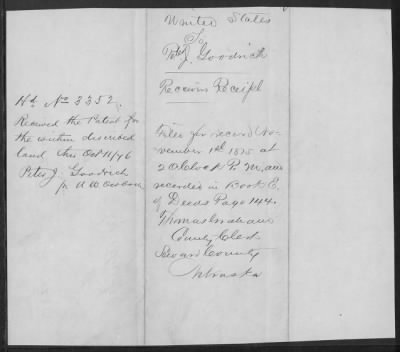 Hd. No 3352.
Received the Patent for
the within described
land this Oct 11/76
Peter J. Goodrich
for
United States
To
Peter J. Goodrich
Receivers Receipt
Filed for record No-
vember 1st 1875 at
2 O'Clock P. M. and
recorded in Book E.
of Deeds Page 144.
Thomas Graham
County Clerk
Seward County
Nebraska